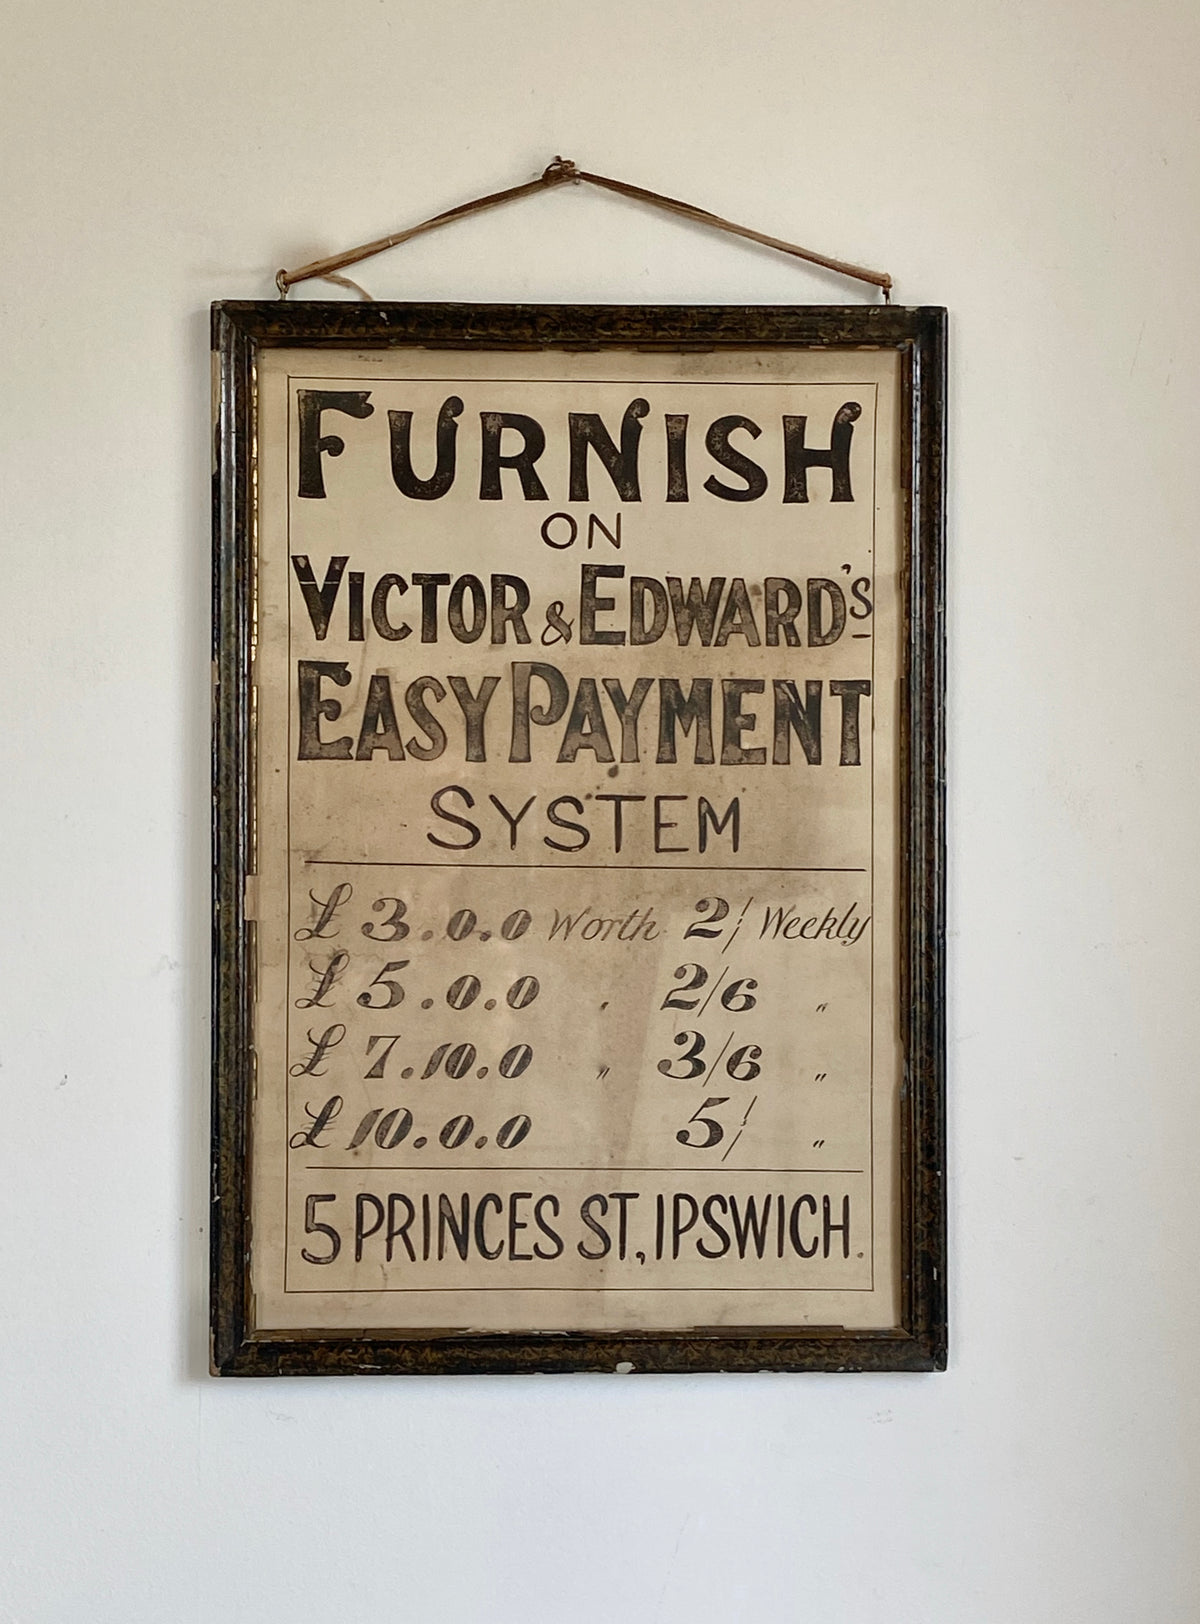 FURNISH
ON
VICTOR & EDWARD'S
EASY PAYMENT
SYSTEM
£ 3.0.0 Worth 2/ Weekly
£ 5.0.0 " 2/6 "
£ 7.10.0 " 3/6 "
£ 10.0.0 5/ "
5 PRINCES ST, IPSWICH.